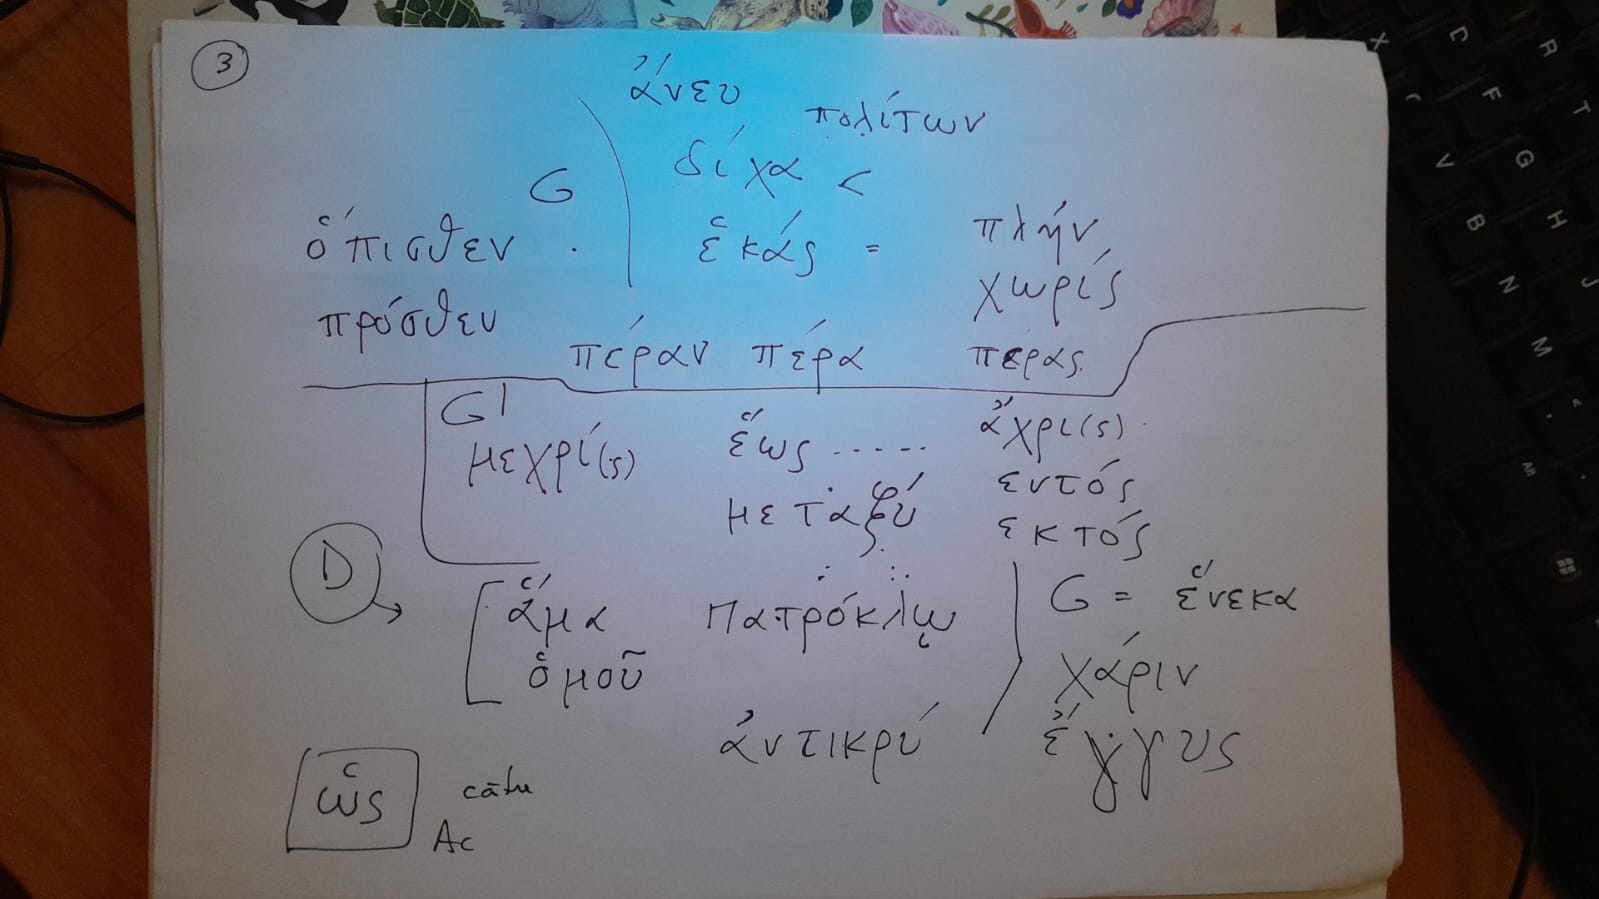 3
ἄνευ πολίτων
G δίχα <
ὅπισθεν . ἑκάς = πλήν
χωρίς
πρόσθεν πέραν πέρα πέρας.
G μεχρί(ς) ἕως ...... ἄχρι(ς).
μεταξύ ἐντός
εκτός
D → ἅμα Πατρόκλῳ G = ἕνεκα
ὁμοῦ χάριν
ἀντικρύ ἔγγυς
ὡς către
Ac